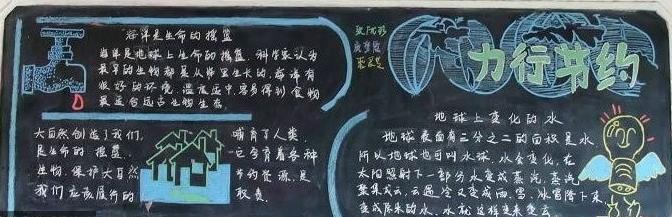 海洋是生命的摇篮
海洋是地球上生命的摇篮，科学家认为
最早的生物都是从那里生长的，海洋有
很好的环境，温度适中，容易得到食物
最适合远古生物生存
大自然创造了我们，哺育了人类，
是生命的摇篮，它孕育着各种
生物，保护大自然节约资源，是
我们应该履行的
责。
力行节约
地球上变化的水
地球表面有三分之二的面积是水
所以地球也可叫水球，水会变化，在
太阳照射下一部分水变成蒸汽，蒸汽
聚集成云，云遇冷又变成雨、雪、冰雹降下来
变成原来的水，水就这样变来变去